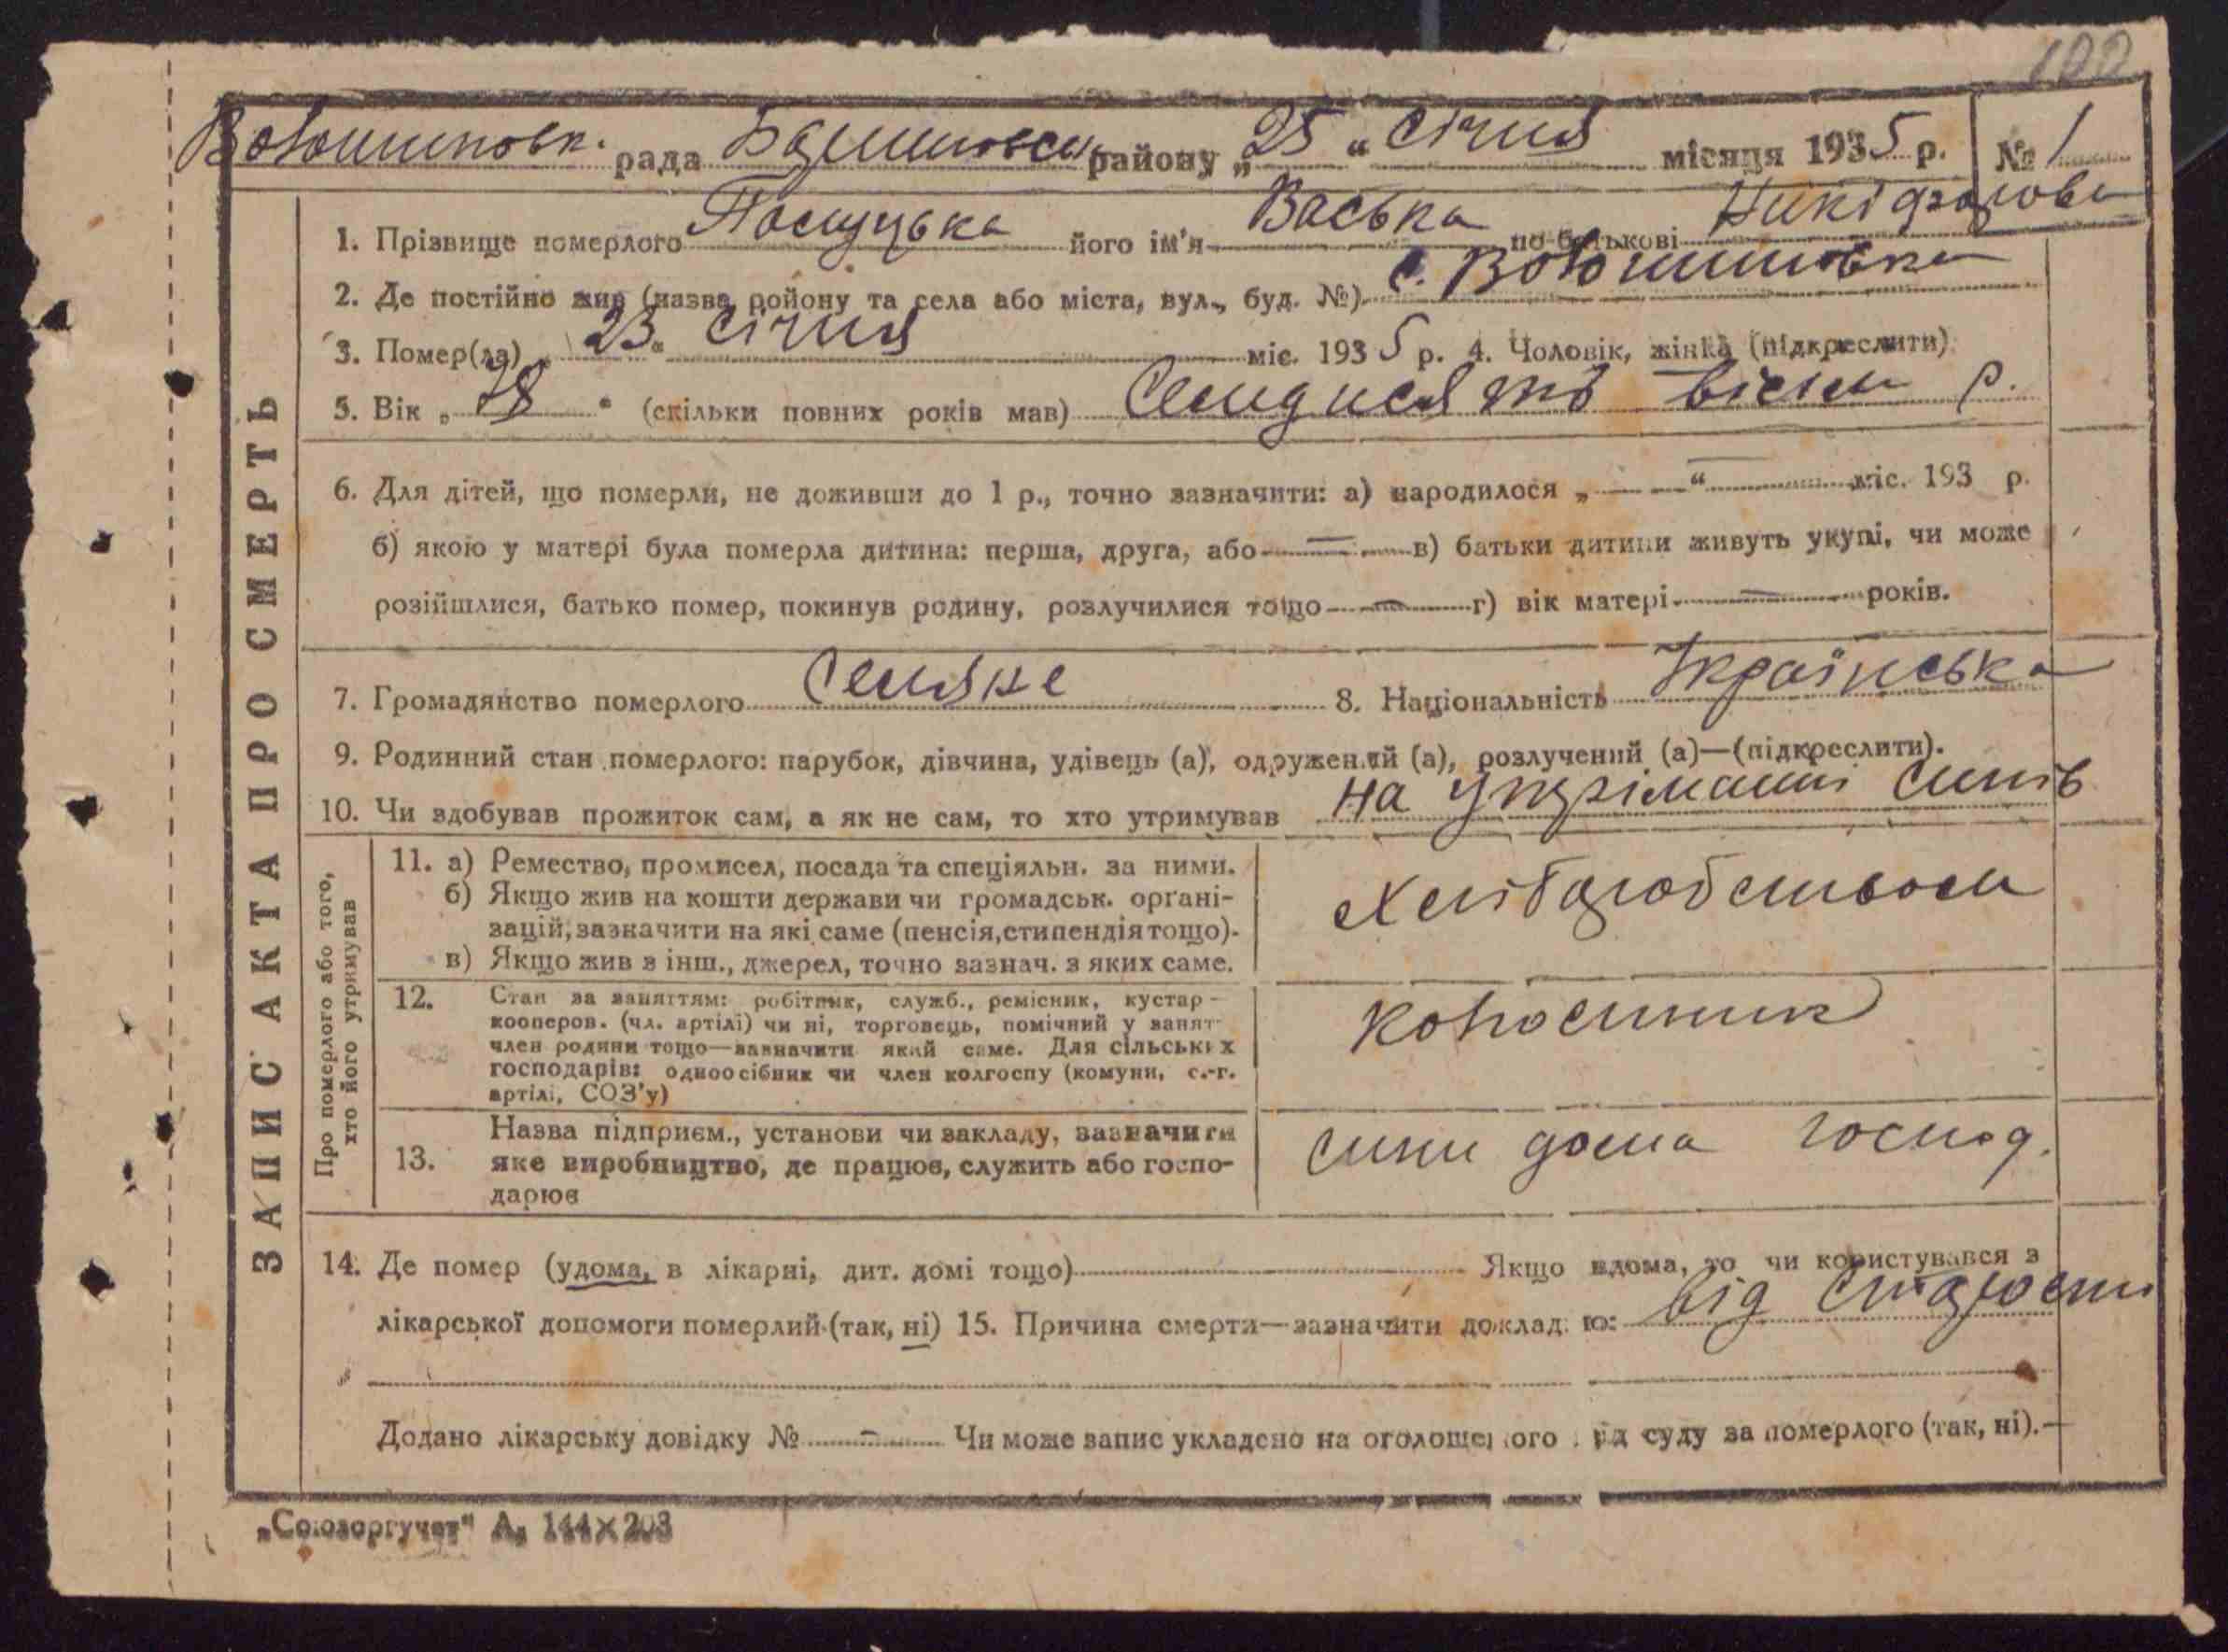 100
Волошиновск. рада Баришовськ. району „25“ Січня місяця 1935 р. № 1
1. Прізвище померлого його ім'я Васька по-батькові Никіфорова
2. Де постійно жив (назва району та села або міста, вул., буд. №) с. Волошиновка
3. Помер(ла) „23“ Січня міс. 1935 р. 4. Чоловік, жінка (підкреслити)
5. Вік „78“ (скільки повних років мав) Семдисять вісім р.
6. Для дітей, що померли, не доживши до 1 р., точно зазначити: а) народилося „— —“ міс. 193 р.
б) якою у матері була померла дитина: перша, друга, або — в) батьки дитини живуть укупі, чи може
розійшлися, батько помер, покинув родину, розлучилися тощо — г) вік матері — років.
7. Громадянство померлого 8. Національність Українська
9. Родинний стан померлого: парубок, дівчина, удівець (а), одружений (а), розлучений (а)—(підкреслити).
10. Чи здобував прожиток сам, а як не сам, то хто утримував на утріманні синів
ЗАПИС АКТА ПРО СМЕРТЬ
Про померлого або того,
хто його утримував
11. а) Ремество, промисел, посада та спеціяльн. за ними.
б) Якщо жив на кошти держави чи громадськ. органі-
зацій, зазначити на які саме (пенсія, стипендія тощо).
в) Якщо жив з інш., джерел, точно зазнач. з яких саме.
Хлібаробством
12. Стан за заняттям: робітник, служб., ремісник, кустар -
кооперов. (чл. артілі) чи ні, торговець, помічний у занят-
член родини тощо—зазначити який саме. Для сільських
господарів: одноосібник чи член колгоспу (комуни, с.-г.
артілі, СОЗ'у)
колхосник
13. Назва підприєм., установи чи закладу, зазначити
яке виробництво, де працює, служить або госпо-
дарює
сини дома господ.
14. Де помер (удома, в лікарні, дит. домі тощо) Якщо вдома, то чи користувався з
лікарської допомоги померлий (так, ні) 15. Причина смерти—зазначити докладно: від старости
Додано лікарську довідку № - Чи може запис укладено на оголошеного від суду за померлого (так, ні).—
„Союзоргучет“ А5 144×203